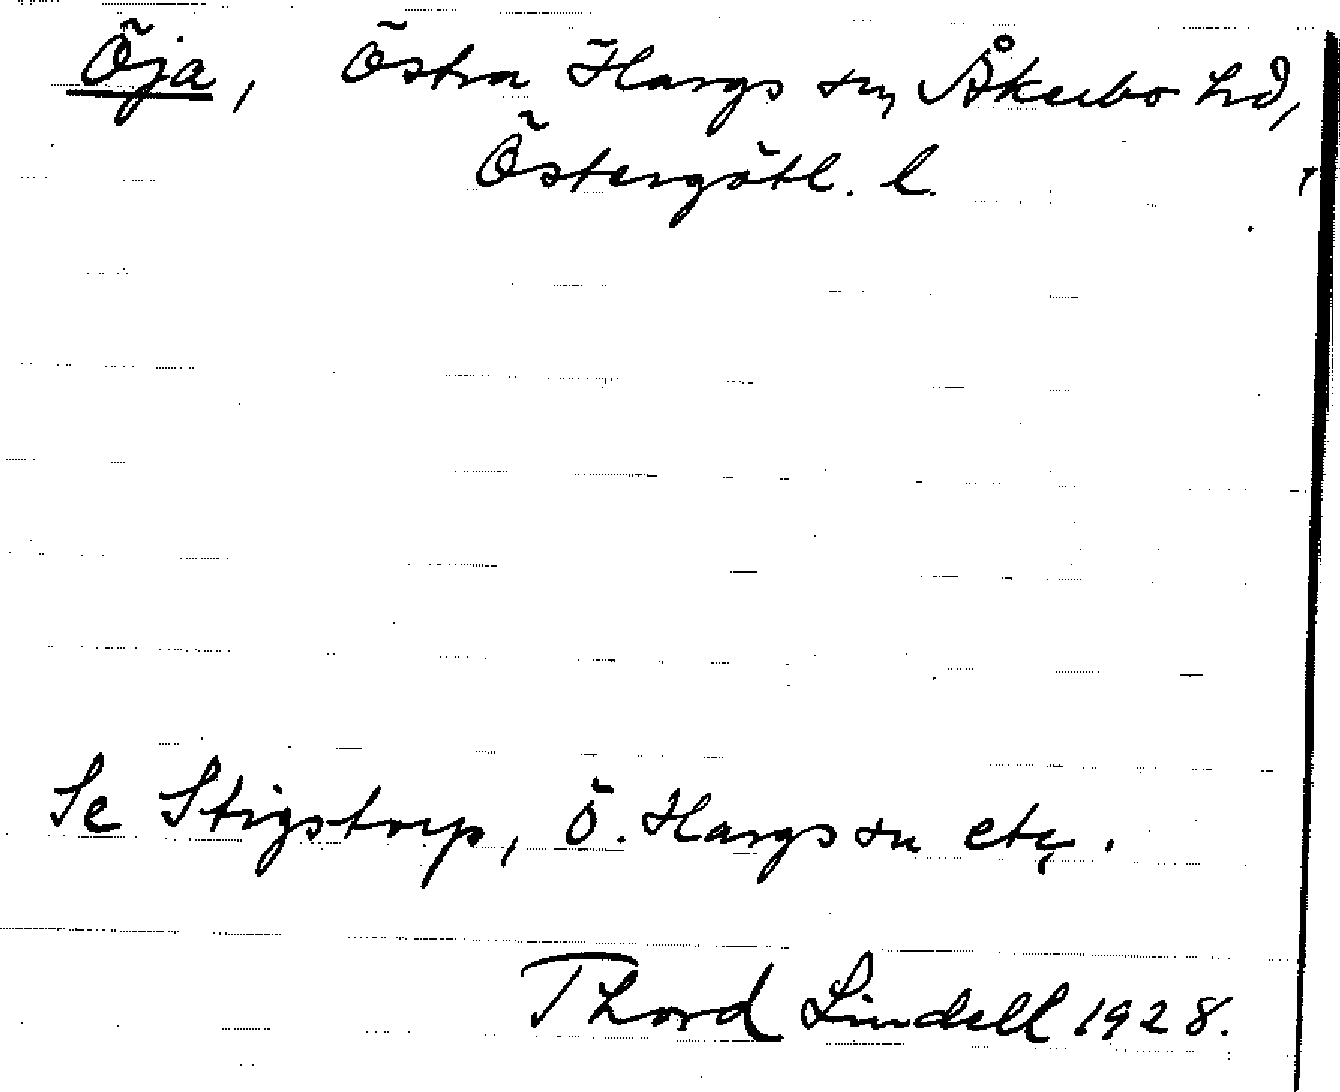 Öja, Östra Hargs sn, Åkerbo hd,
Östergötl. l.
Se Stigstorp, Ö. Hargs sn etc.
Thord Lindell 1928.